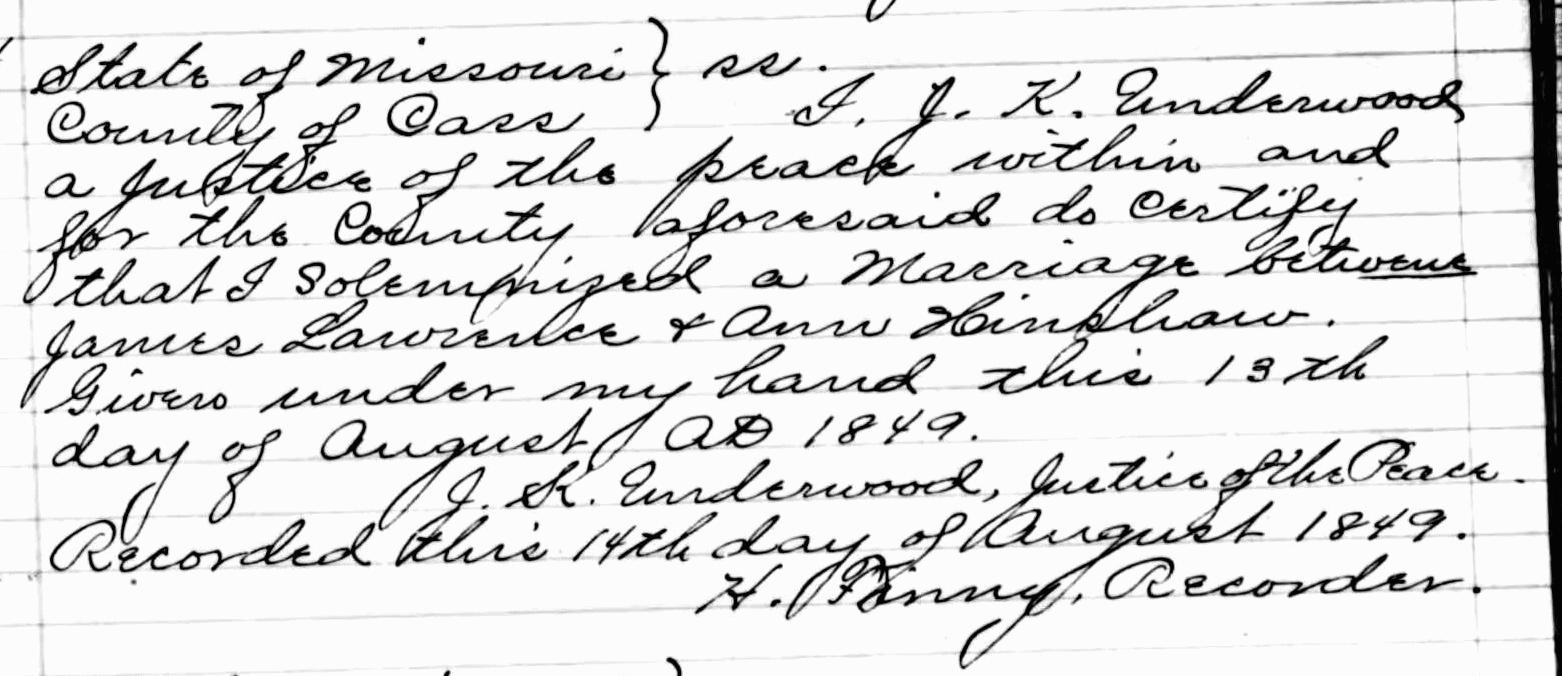 State of Missouri } ss.
County of Cass } I, J. K. Underwood,
a Justice of the peace within and
for the County aforesaid do certify
that I solemnized a Marriage betweene
James Lawrence & Ann Hinshaw.
Given under my hand this 13th
day of August AD 1849.
J. K. Underwood, Justice of the Peace.
Recorded this 14th day of August 1849.
H. Finny, Recorder.